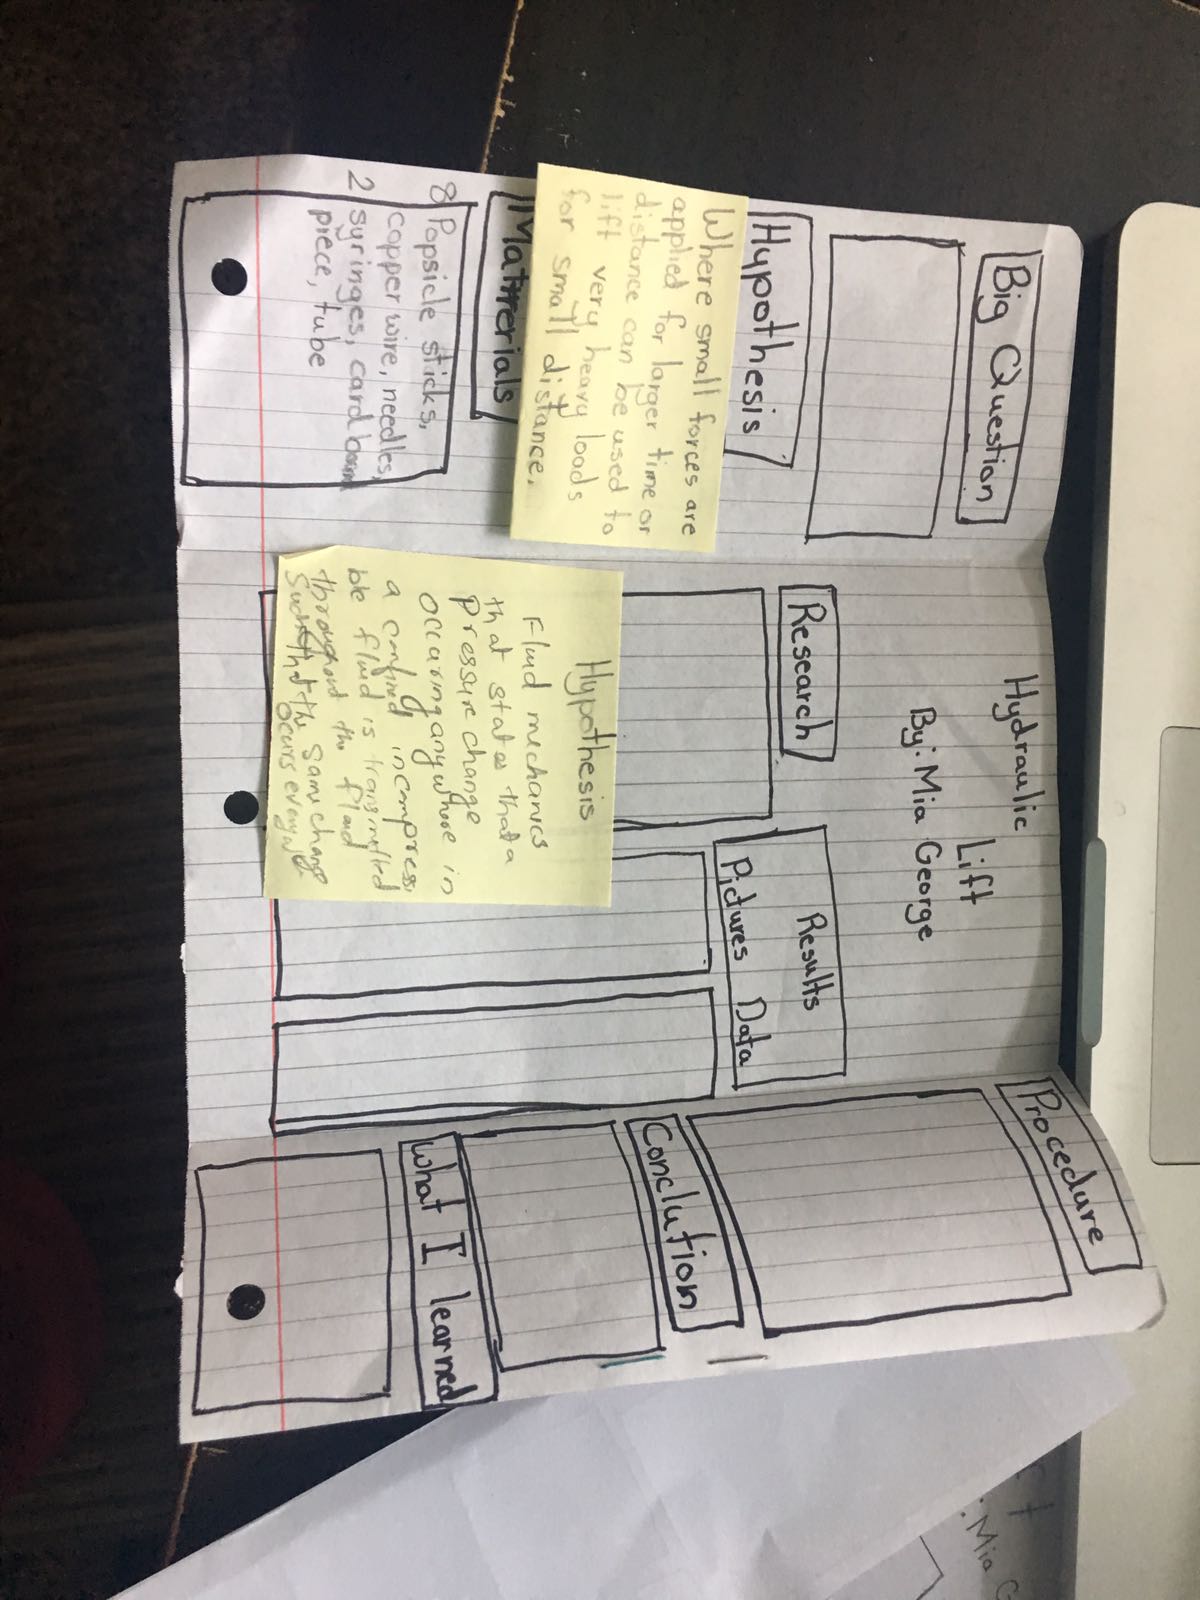 Big Question
Hypothesis
Where small forces are
applied for larger time or
distance can be used to
lift very heavy loads
for small distance.
Matrerials
8 Popsicle sticks,
copper wire, needles,
2 syringes, cardboard
piece, tube
Hydraulic
Lift
By: Mia George
Research
Hypothesis
Fluid mechanics
that states that a
Pressure change
occuring anywhere in
a confined incompres
ble fluid is transmitted
throughout the fluid
Such that the same change
occurs everyw
Results
Pictures Data
Procedure
Conclution
What I learned
Mia G